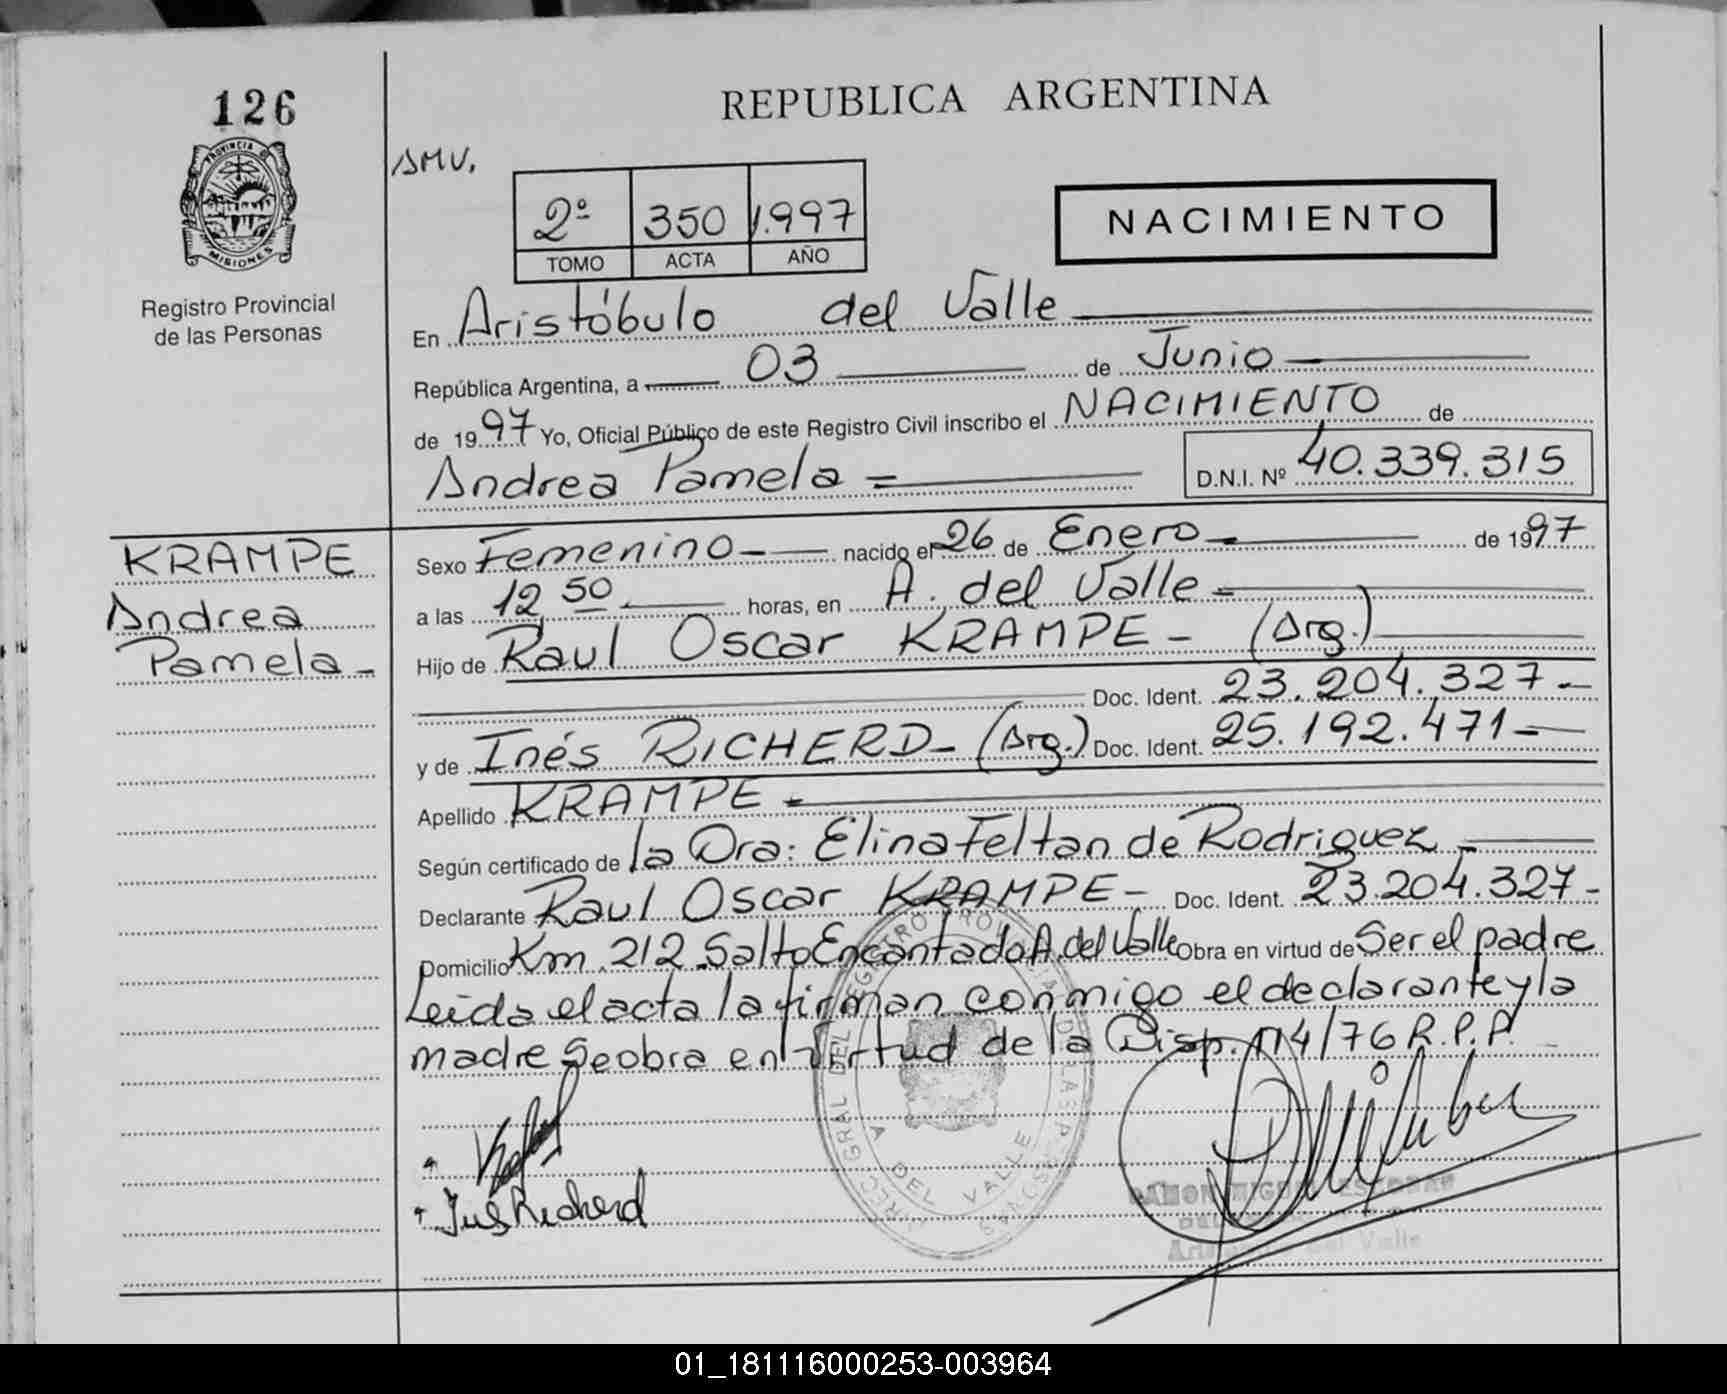 126
PROVINCIA D
MISIONES
Registro Provincial
de las Personas
REPUBLICA ARGENTINA
AMV.
2º 350 1.997
TOMO ACTA AÑO
NACIMIENTO
En Aristóbulo del Valle
República Argentina, a 03 de Junio
de 1997 Yo, Oficial Público de este Registro Civil inscribo el NACIMIENTO de
Andrea Pamela = D.N.I. Nº 40.339.315
KRAMPE
Andrea
Pamela -
Sexo Femenino - nacido el 26 de Enero - de 1997
a las 12 50 horas, en A. del Valle -
Hijo de Raul Oscar KRAMPE - (Arg.)
Doc. Ident. 23.204.327 -
y de Inés RICHERD - (Arg.) Doc. Ident. 25.192.471 -
Apellido KRAMPE -
Según certificado de la Dra: Elina Feltan de Rodriguez -
Declarante Raul Oscar KRAMPE - Doc. Ident. 23.204.327 -
Domicilio Km. 212 Salto Encantado A. del Valle Obra en virtud de Ser el padre
Leida el acta la firman conmigo el declarante y la
madre Se obra en virtud de la Disp. 114/76 R.P.P.
A DEL VALLE
Inés Richerd
RAMON MIGUEL ESCOBAR
del Valle
01_181116000253-003964